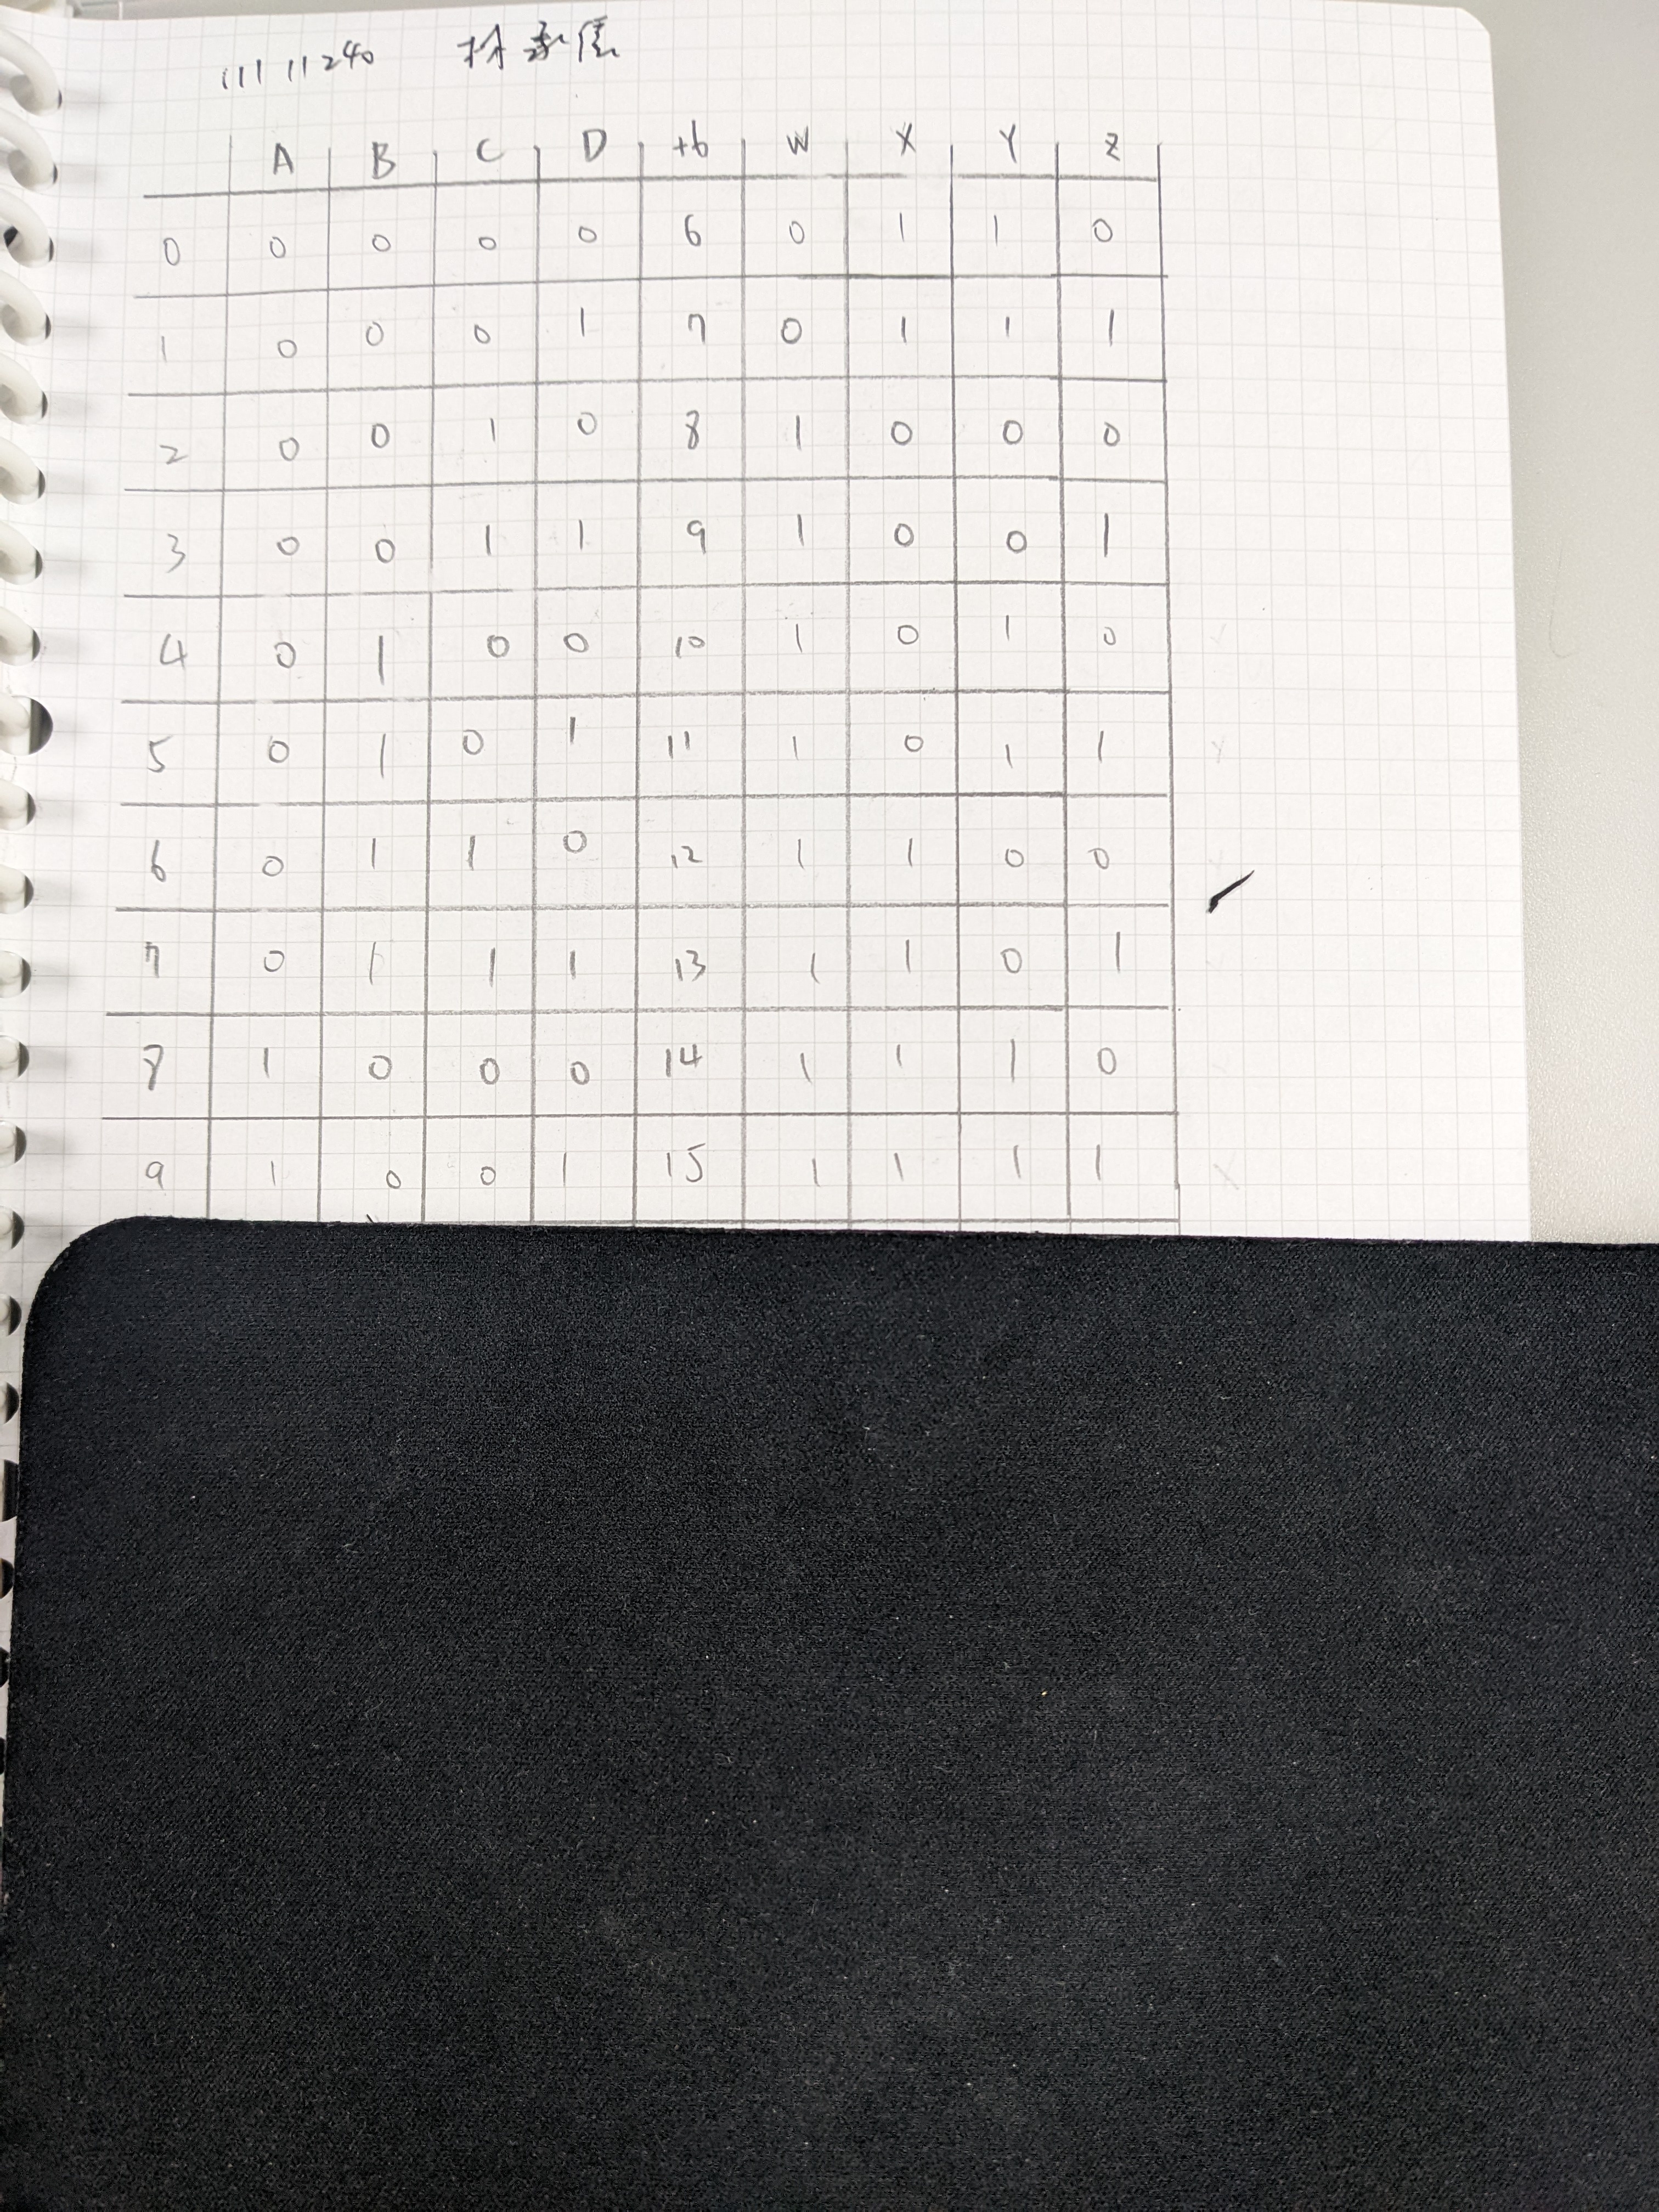 11111240 林承信
A B C D +6 W X Y Z
0 0 0 0 0 6 0 1 1 0
1 0 0 0 1 7 0 1 1 1
2 0 0 1 0 8 1 0 0 0
3 0 0 1 1 9 1 0 0 1
4 0 1 0 0 10 1 0 1 0
5 0 1 0 1 11 1 0 1 1
6 0 1 1 0 12 1 1 0 0
7 0 1 1 1 13 1 1 0 1
8 1 0 0 0 14 1 1 1 0
9 1 0 0 1 15 1 1 1 1